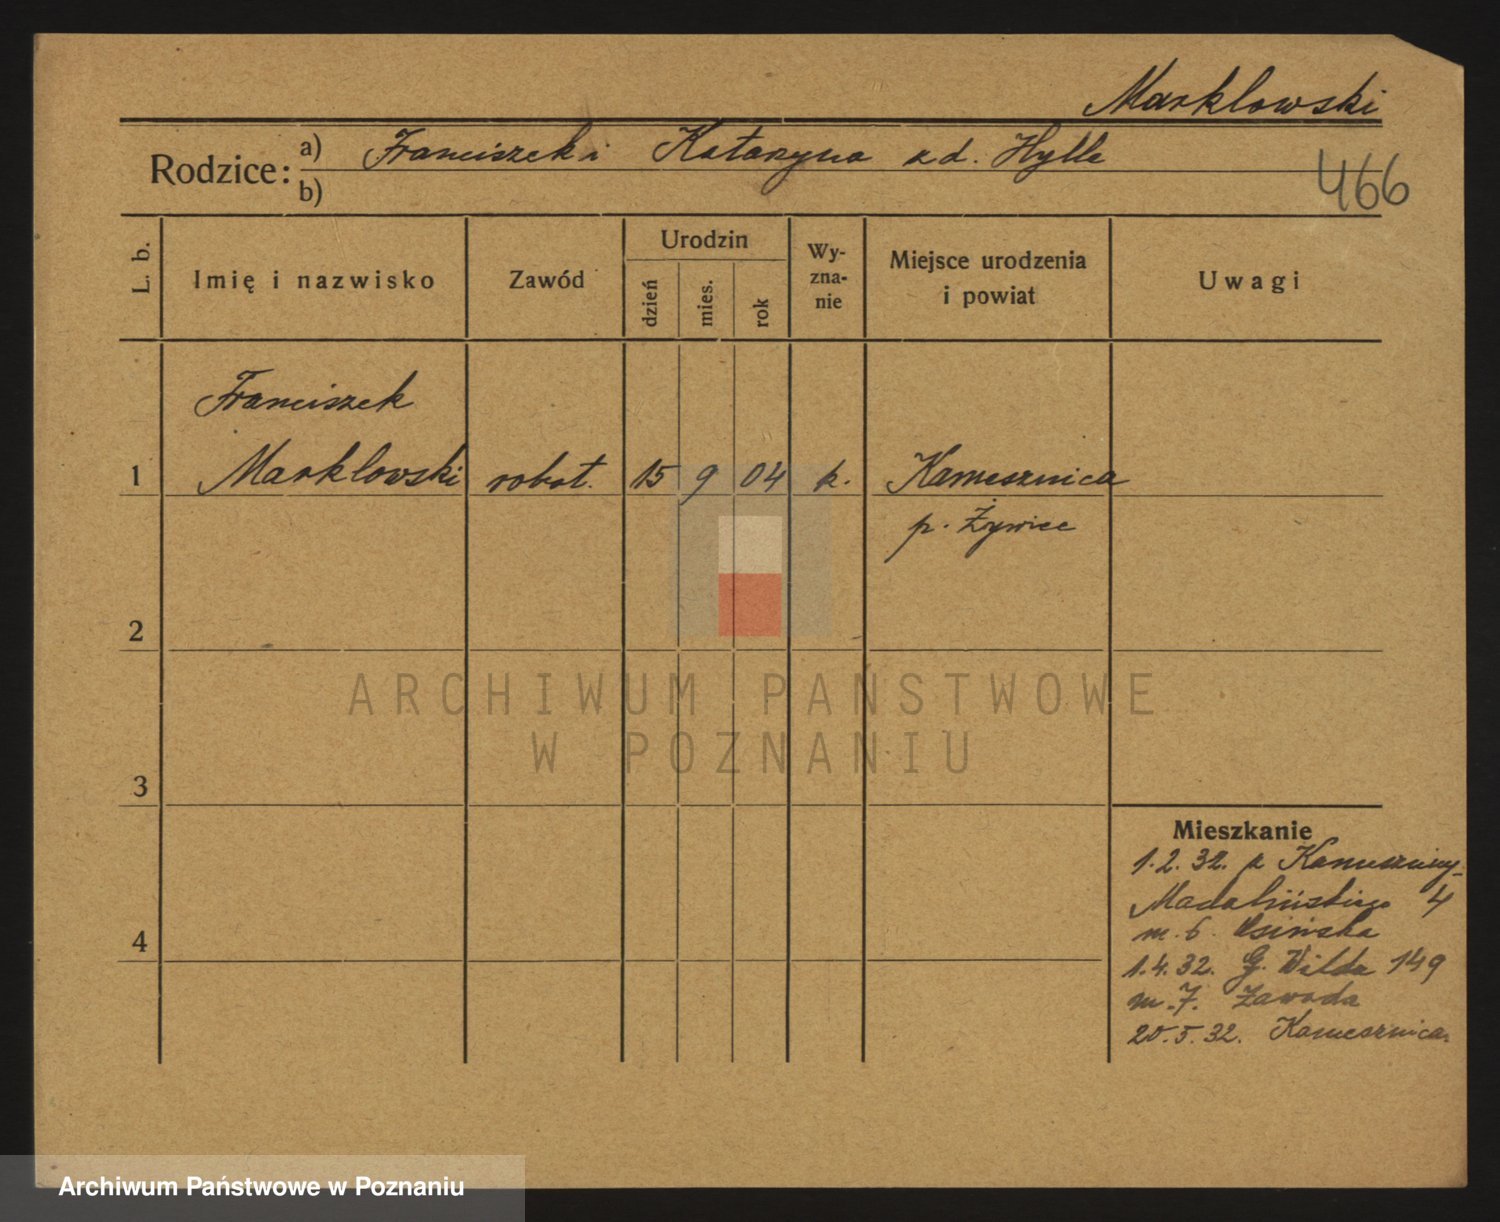 Marklowski
Rodzice: a) Franciszek i Katarzyna zd. Hylla
b)
466
L. b.
Imię i nazwisko
Zawód
Urodzin
dzień
mies.
rok
Wy-
zna-
nie
Miejsce urodzenia
i powiat
Uwagi
Franciszek
1 Marklowski robot. 15 9 04 k. Kamesznica
p. Żywiec
2
ARCHIWUM PAŃSTWOWE
W POZNANIU
3
4
Mieszkanie
1.2.32. z Kamesznicy
Madalińskiego 4
m. 6. Osińska
1.4.32. G. Wilda 149
m. 7. Zawada
20.5.32. Kamesznica
Archiwum Państwowe w Poznaniu